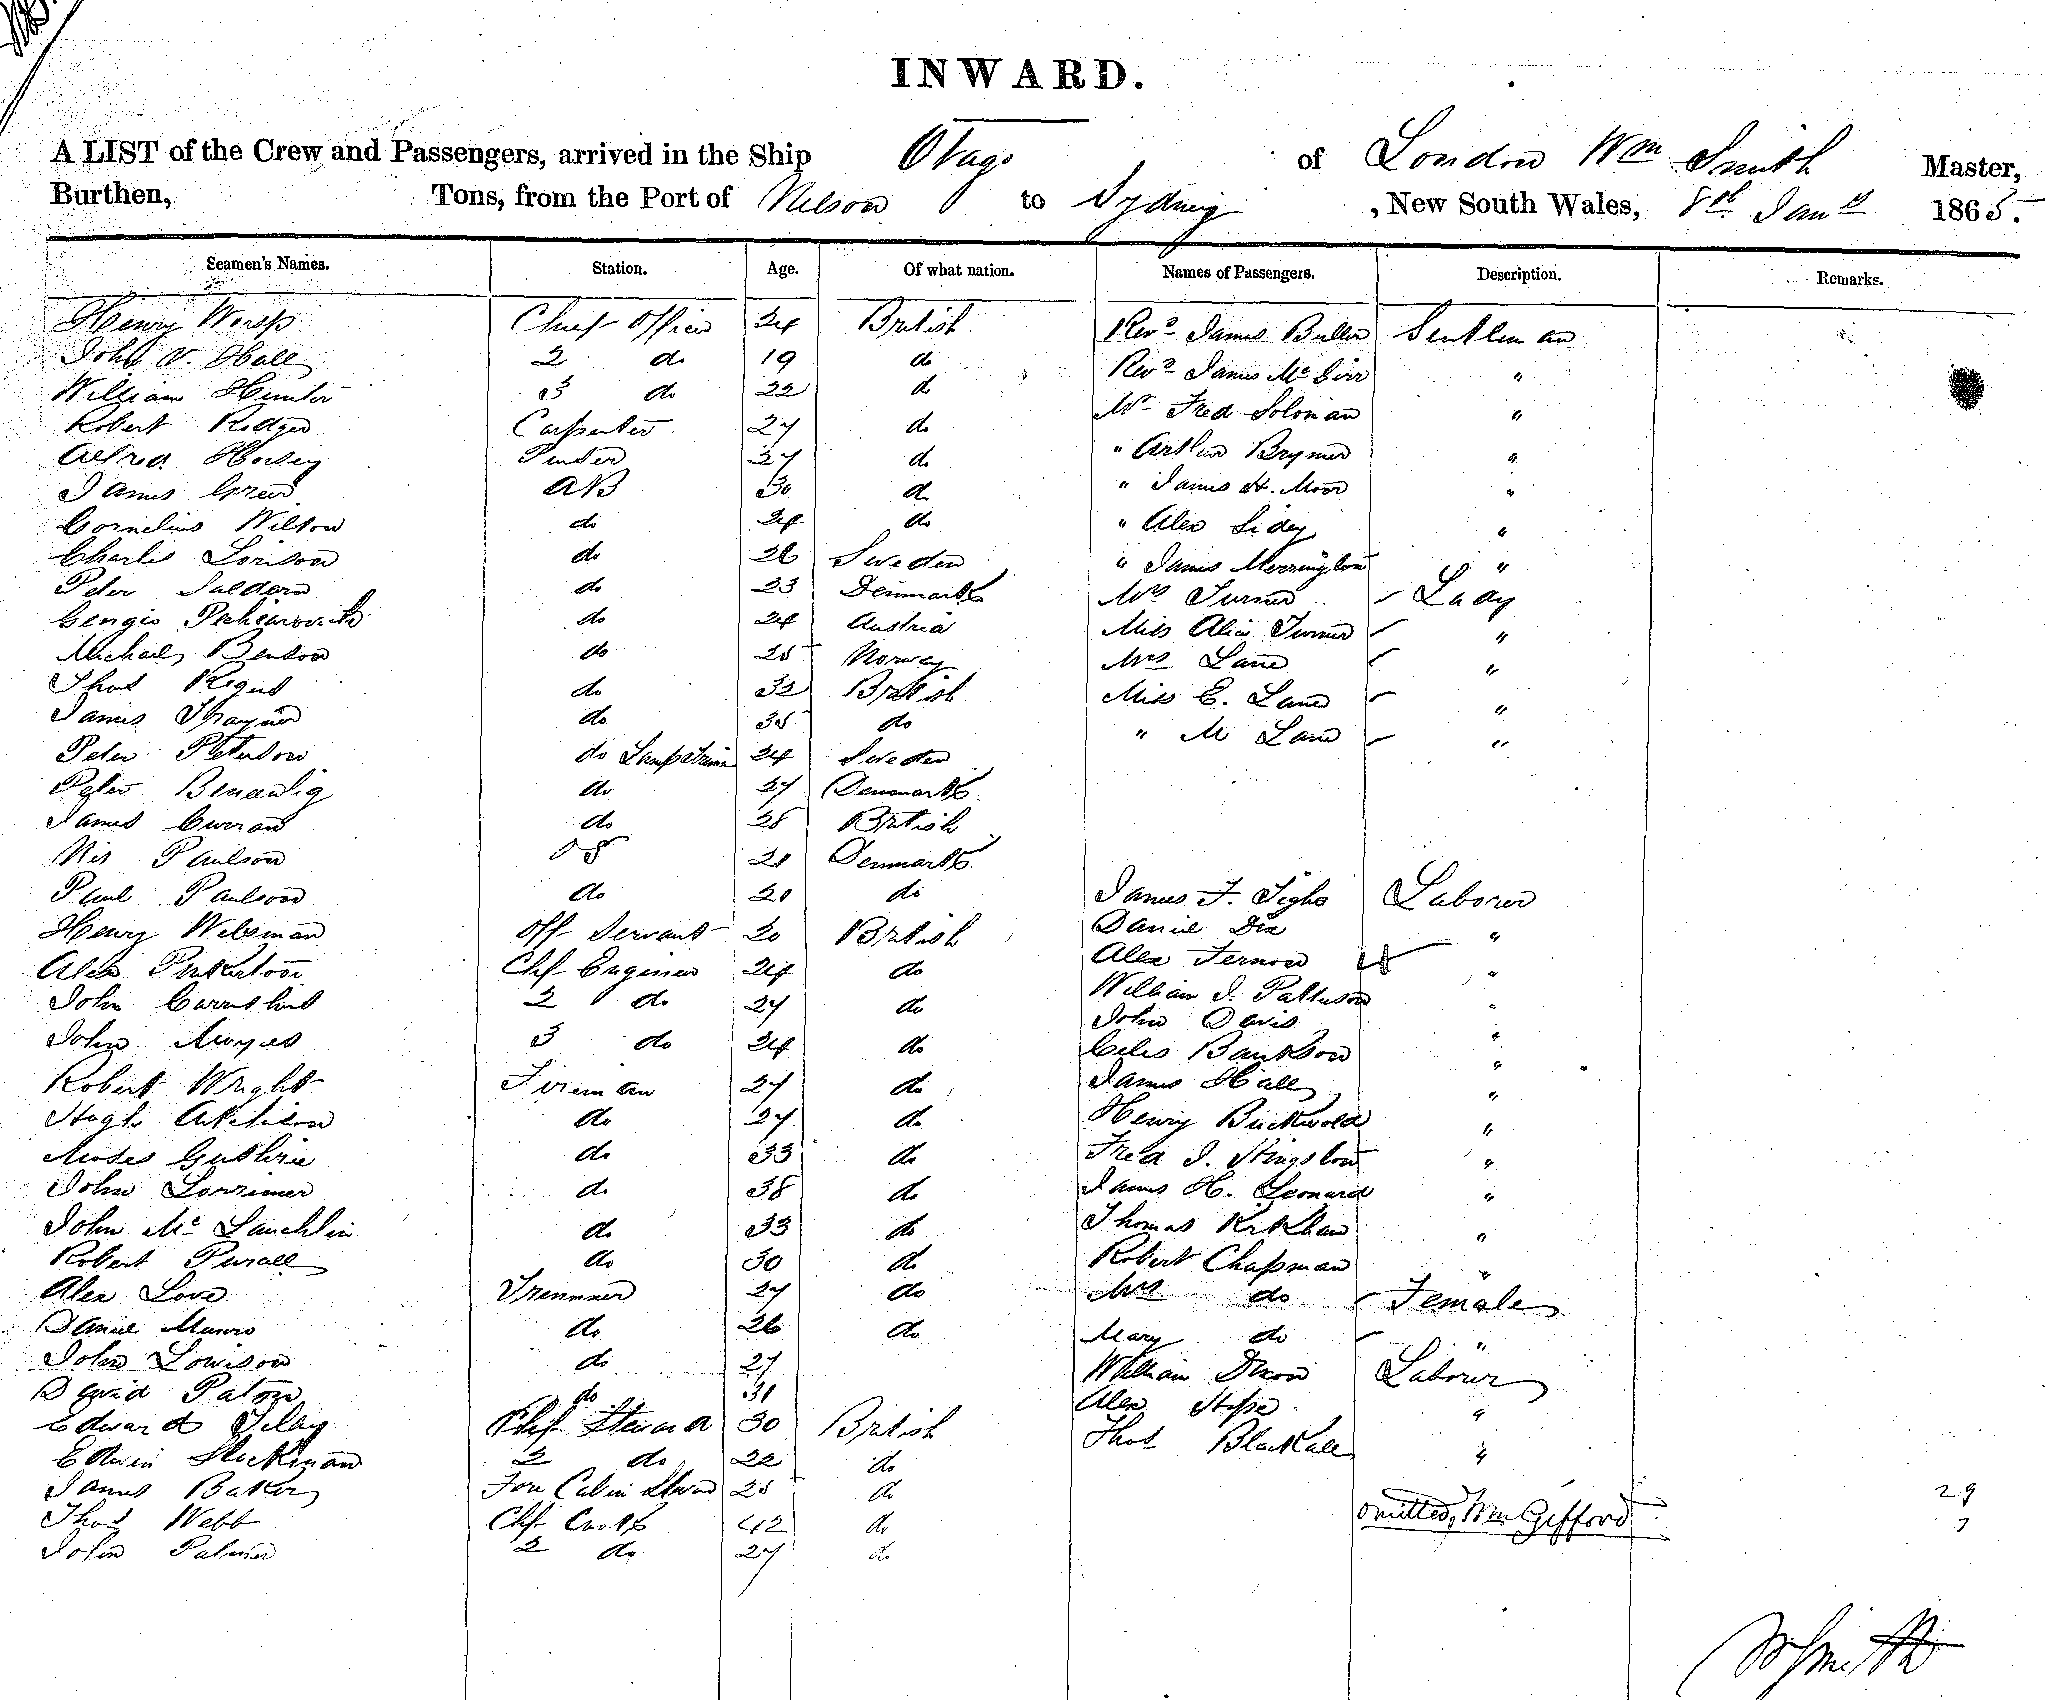 INWARD.
A LIST of the Crew and Passengers, arrived in the Ship Otago of London Wm Smith Master,
Burthen, Tons, from the Port of Nelson to Sydney, New South Wales, 8th Jany 1865.
Seamen's Names. Station. Age. Of what nation. Names of Passengers. Description. Remarks.
Henry Worsp Chief Officer 24 British Revd James Buller Gentleman
John V. Hall 2 do 19 do Revd James McGirr "
William Hunter 3 do 22 do Mr Fred Soloman "
Robert Rodger Carpenter 27 do " Arthur Brymer "
Alfred Horsey 27 do " James H. Moor "
James Grew AB 30 do " Alex Sidey "
Cornelius Wilson do 24 do " James Merrington "
Charles Lorison do 26 Sweden Mrs Turner Lady
Peter do 23 Denmark Miss Alice Turner "
do 24 Austria Mrs Lane "
Michael Benson do 25 Norway Miss E. Lane "
Thos do 32 British " M Lane "
James Traynor do 35 do
Peter Peterson do Lamptrimr 24 Sweden
Peter do 27 Denmark
James Curran do 28 British
Nis Paulson OS 21 Denmark
Paul Paulson do 20 do James F. Tighe Laborer
Henry Welsman Off Servant 20 British Daniel Dix "
Alex Pinkerton Chf Engineer 24 do Alex "
John 2 do 27 do William J. Patterson "
John Moyes 3 do 24 do John Davis "
Robert Wright Fireman 27 do James Hall "
Hugh Aitchison do 27 do Henry "
Moses Guthrie do 33 do Fred J. "
John Lorrimer do 38 do James H. Leonard "
John McLauchlin do 33 do Thomas Kirkham "
Robert do 30 do Robert Chapman "
Alex Love Tremmer 27 do Mrs do Female
Daniel Munro do 26 do Mary do "
John Lowison do 27 William Dixon Labourer
David Paton do 31 Alex "
Edward Tilley Chf Steward 30 British Thos Blackall "
Edwin Stockman 2 do 22 do
James Baker Fore Cabin Steward 25 do
Thos Webb Chf Cook 42 do omitted, Wm Gifford 29
John Palmer 2 do 27 do 7
W Smith